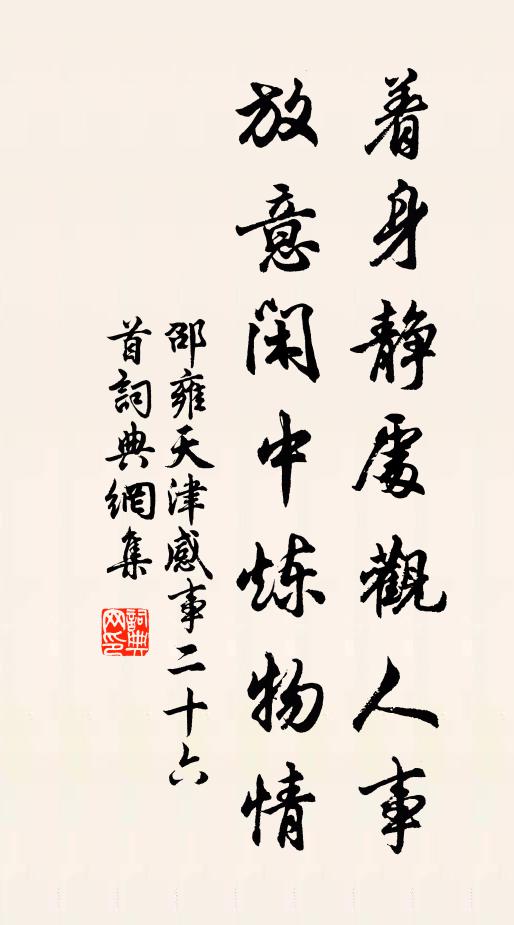 着身靜處觀人事
放意閑中炼物情
邵雍天津感事二十六
首詞典網集
詞典
网印